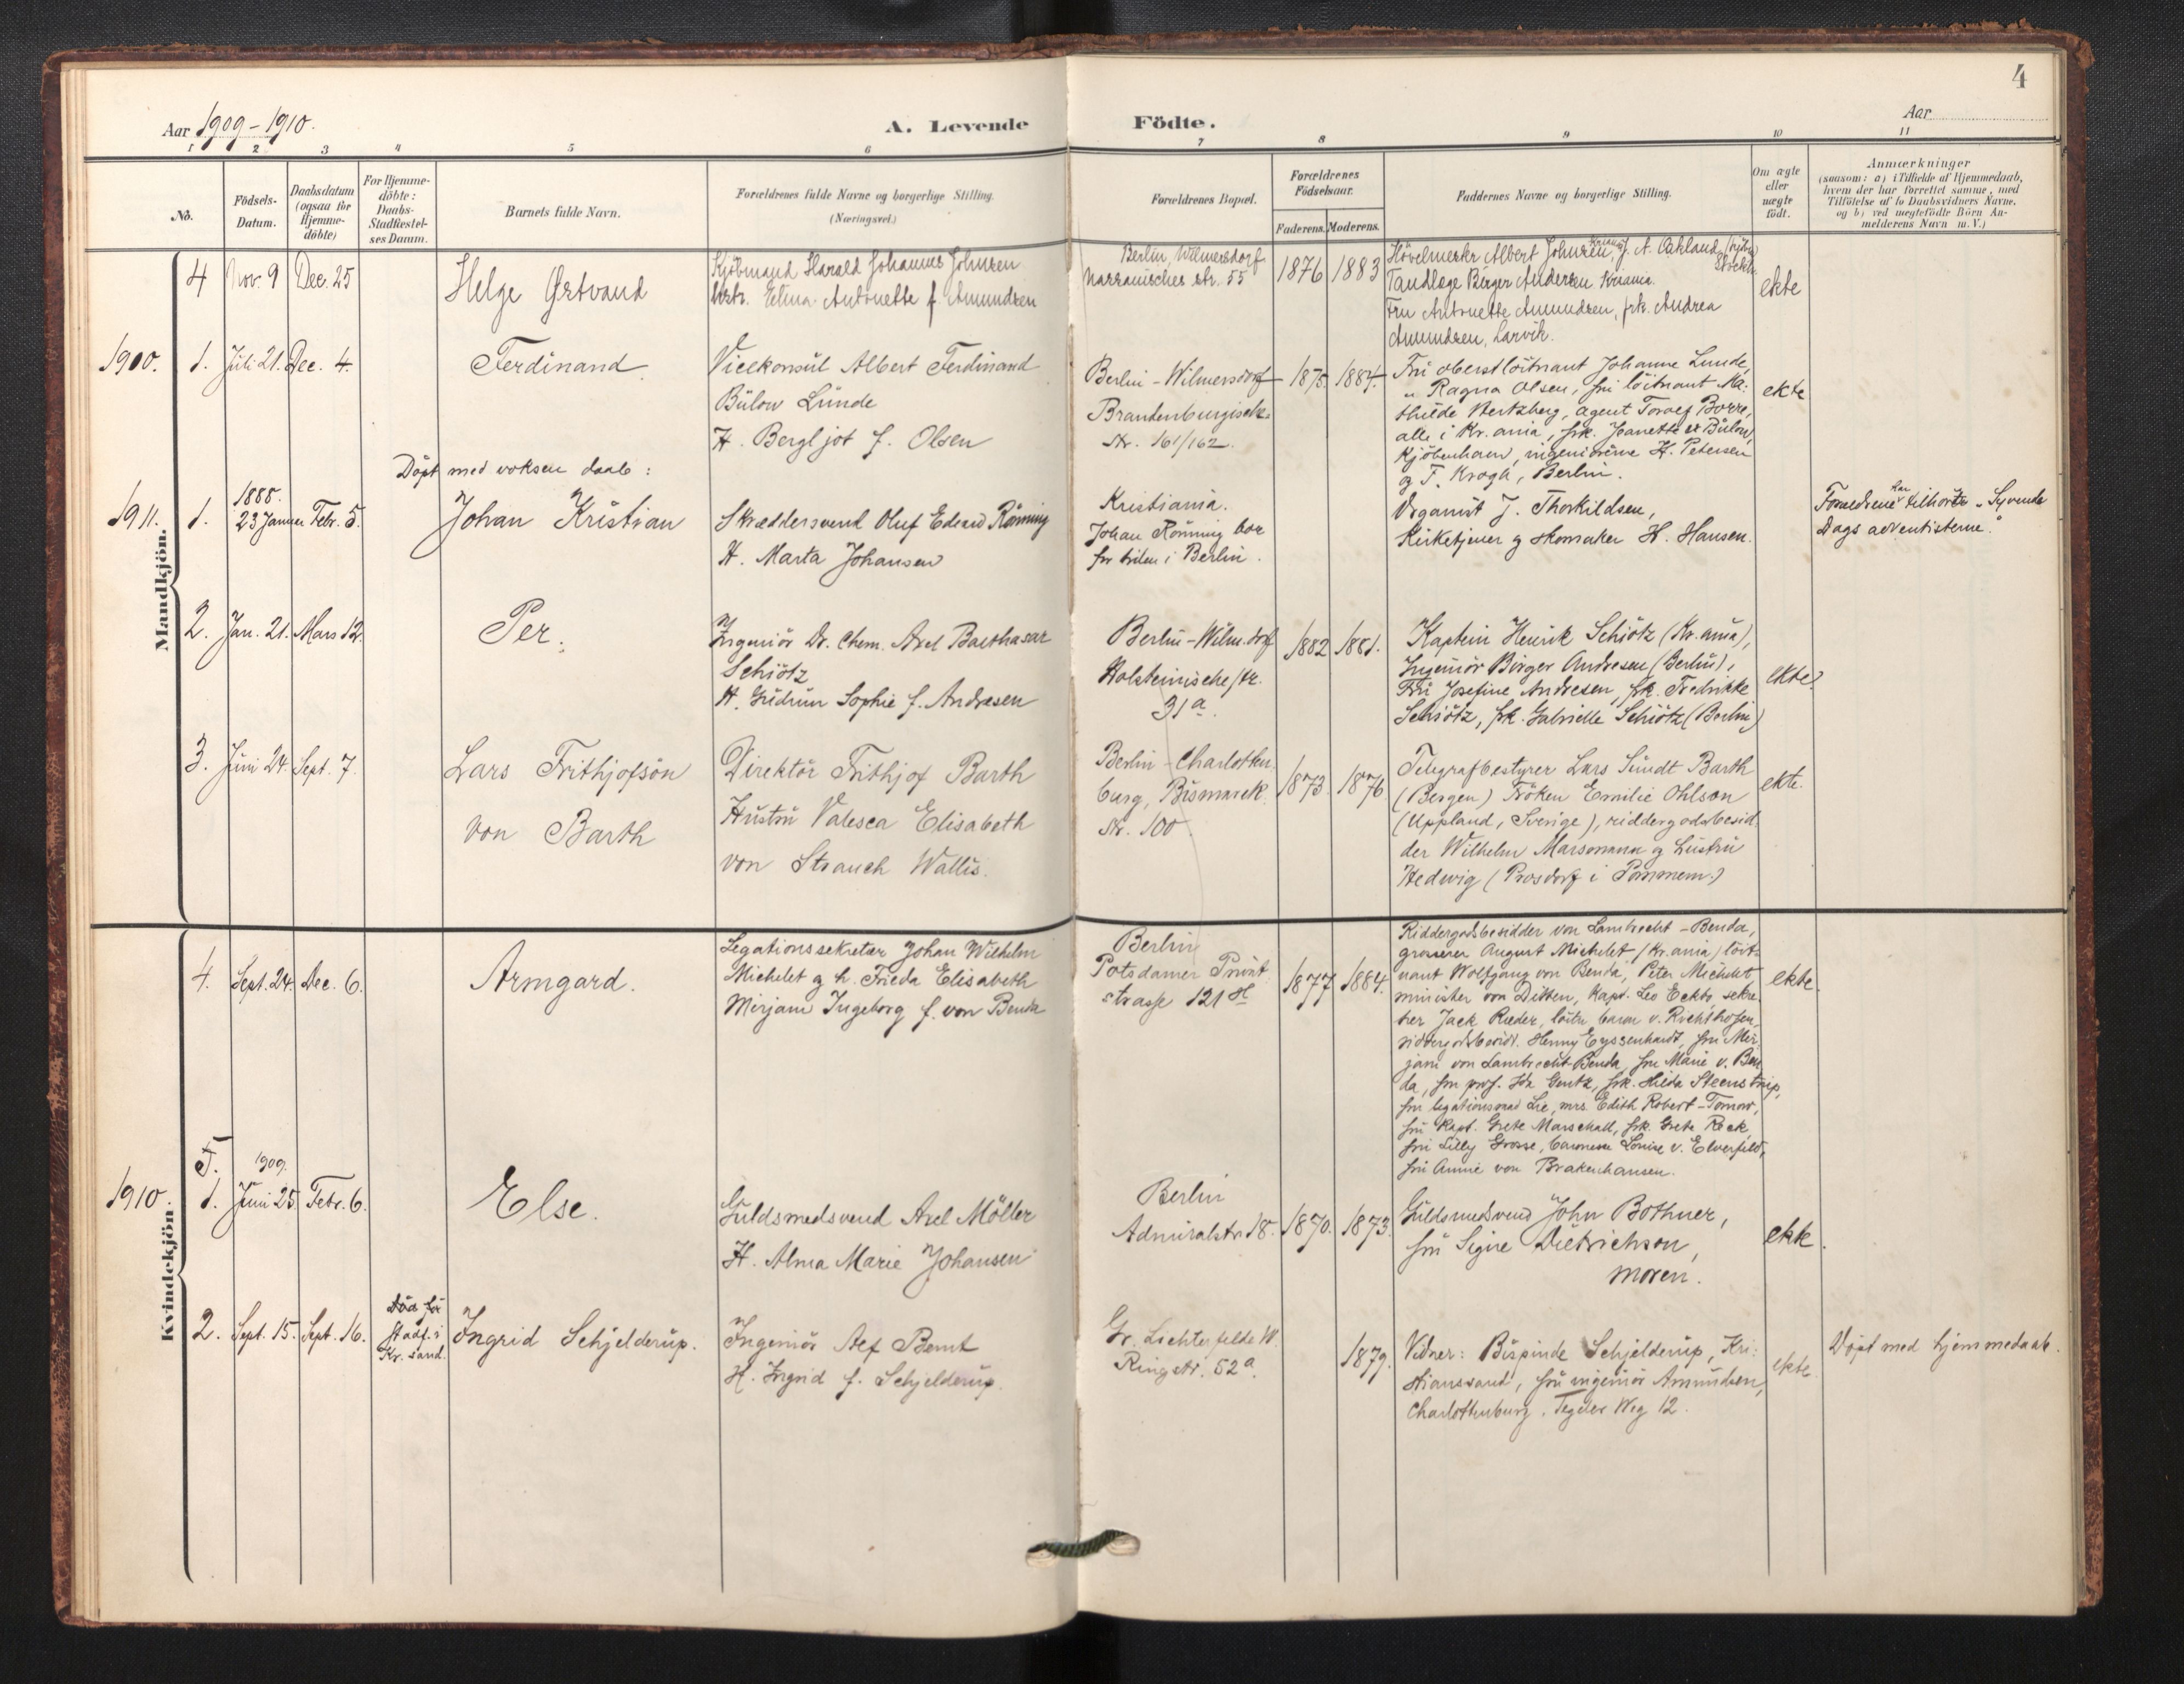 4
Aar 1909-1910.
A. Levende Födte.
Aar
1 2 3 4 5 6 7 8 9 10 11
No.
Födsels-
Datum.
Daabsdatum
(ogsaa for
Hjemme-
döbte)
For Hjemme-
döbte:
Daabs-
Stadfæstel-
ses Datum.
Barnets fulde Navn.
Forældrenes fulde Navne og borgerlige Stilling.
(Næringsvei.)
Forældrenes Bopæl.
Forældrenes
Födselsaar.
Faderens. Moderens.
Faddernes Navne og borgerlige Stilling.
Om ægte
eller
uægte
födt.
Anmærkninger
(saasom: a) i Tilfælde af Hjemmedaab,
hvem der har forrettet samme, med
Tilföielse af to Daabsvidners Navne,
og b) ved uægtefödte Börn An-
melderens Navn m. V.)
Mandkjön.
4 Nov. 9 Dec. 25
Helge Østvand
Kjöbmand Harald Johannes Johnsen
hstr. Elina Antonette f. Amundsen
Berlin, Wilmersdorf
Nassauisches str. 55
1876 1883
Hövelmester Albert Johnsen, J. A. Oakland
Tandlæge Birger Andersen Kr.ania.
Fru Antonette Amundsen, frk. Andrea
Amundsen, Larvik.
ekte
1910. 1. Juli 21. Dec. 4.
Ferdinand.
Vicekonsul Albert Ferdinand
Bülow Lunde
H. Bergljot f. Olsen
Berlin-Wilmersdorf
Brandenburgische
Str. 161/162.
1875. 1884.
Fru oberstlöitnant Johanne Lunde,
" Ragna Olsen, fru löitnant Ma-
thilde Hertzberg, agent Toralf Borre,
alle i Kr.ania, frk. Jeanette Bülow,
Kjöbenhavn, ingeniörerne H. Petersen
og F. Krogh, Berlin.
ekte
Döpt med voksen daab:
1911. 1. 1888.
23 Januar Febr. 5.
Johan Kristian
Skræddersvend Oluf Edvard Rönning
H. Marta Johansen
Kristiania.
Johan Rönning bor
for tiden i Berlin.
Organist J. Thorkildsen,
Kirketjener og skomaker H. Hansen.
Forældrene har tilhört "Syvende
Dags adventisterne".
2. Jan. 21. Mars 12.
Per.
Ingeniör Dr. Chem. Axel Balthasar
Schiötz
H. Gudrun Sophie f. Andresen
Berlin-Wilm.dorf
Holsteinische str.
31a.
1882 1881.
Kaptein Henrik Schiötz (Kr.ania),
Ingeniör Birger Andresen (Berlin),
Fru Josefine Andresen, frk. Fredrikke
Schiötz, frk. Gabrielle Schiötz (Berlin)
ekte
3. Juni 24. Sept. 7.
Lars Frithjofsön
von Barth
Direktör Frithjof Barth
Hustru Valesca Elisabeth
von Strauch Wallis.
Berlin-Charlotten-
burg, Bismarck
Str. 100
1873. 1876
Telegrafbestyrer Lars Sundt Barth
(Bergen) Fröken Emilie Ohlson
(Uppland, Sverige), riddergodsbesid-
der Wilhelm Marsmann og hustru
Hedwig (Prosdorf i Pommern.)
ekte.
Kvindekjön.
4. Sept. 24. Dec. 6.
Armgard.
Legationssekretær Johan Wilhelm
Michelet og h. Frieda Elisabeth
Mirjam Ingeborg f. von Benda
Berlin
Potsdamer Privat
strasse 121 H
1877 1884.
Riddergodsbesidder von Lambrecht-Benda,
grosserer August Michelet (Kr.ania) löit-
nant Wolfgang von Benda, Peter Michelet
minister von Ditten, Kapt. Leo sekre-
tær Jack Ræder, löitn. baron v. Richthofen,
riddergodsbesidd. Henny Eyssenhardt, fru Mir-
jam von Lambrecht-Benda, fru Marie v. Ben-
da, fru prof. Ida Gentz, frk. Hilda Steenstrup,
fru legationsraad Lie, mrs. Edith Robert-Tornow,
fru Kapt. Grete Marschall, frk. Grete Reck,
fru Lilly Grosse, baronesse Louise v. Elverfeldt,
fru Annie von Brakenhausen.
ekte.
5.
1910. 1. 1909.
Juni 25. Febr. 6.
Else.
Guldsmedsvend Axel Möller
H. Alma Marie Johansen
Berlin
Admiralstr. 18.
1870. 1873.
Guldsmedsvend John Bothner,
fru Signe Dietrichson,
moren.
ekte.
2. Sept. 15. Sept. 16.
Död för
stadf. i
Kr.sand.
Ingrid Schjelderup.
Ingeniör Alf Bernt
H. Ingrid f. Schjelderup.
Gr. Lichterfelde W.
Ringstr. 52a.
1879.
Vidner: Bispinde Schjelderup, Kri-
stianssand, fru ingeniör Amundsen,
Charlottenburg, Tegeler Weg 12.
ekte.
Döpt med hjemmedaab.